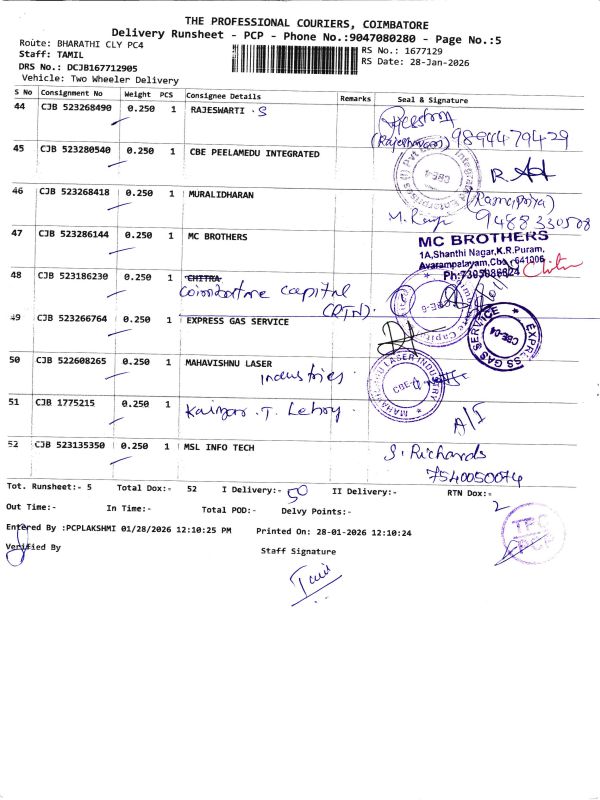 THE PROFESSIONAL COURIERS, COIMBATORE
Delivery Runsheet - PCP - Phone No.:9047080280 - Page No.:5
Route: BHARATHI CLY PC4
RS No.: 1677129
Staff: TAMIL
RS Date: 28-Jan-2026
DRS No.: DCJB167712905
Vehicle: Two Wheeler Delivery
S No Consignment No Weight PCS Consignee Details Remarks Seal & Signature
44 CJB 523268490 0.250 1 RAJESWARTI . S
(Rajeshwari) 9894479429
45 CJB 523280540 0.250 1 CBE PEELAMEDU INTEGRATED
CBE-4
46 CJB 523268418 0.250 1 MURALIDHARAN
(Ramapriya)
9488330508
47 CJB 523286144 0.250 1 MC BROTHERS
MC BROTHERS
1A,Shanthi Nagar,K.R.Puram,
Avarampalayam,Cbe - 641006
Ph:7305086624
48 CJB 523186230 0.250 1 CHITRA
Coimbatore capital
(RTN).
49 CJB 523266764 0.250 1 EXPRESS GAS SERVICE
EXPRESS GAS SERVICE
CBE-04
50 CJB 522608265 0.250 1 MAHAVISHNU LASER
industries.
MAHAVISHNU LASER INDUSTRY
51 CJB 1775215 0.250 1
A/I
52 CJB 523135350 0.250 1 MSL INFO TECH
S. Richards
7540050074
Tot. Runsheet:- 5 Total Dox:- 52 I Delivery:- 50 II Delivery:- RTN Dox:- 2
Out Time:- In Time:- Total POD:- Delvy Points:-
Entered By :PCPLAKSHMI 01/28/2026 12:10:25 PM Printed On: 28-01-2026 12:10:24
Verified By Staff Signature
TPC
PCP